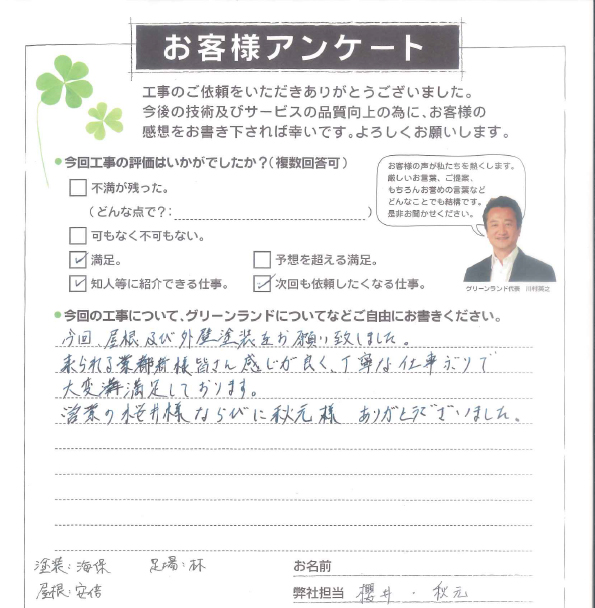 お客様アンケート
工事のご依頼をいただきありがとうございました。
今後の技術及びサービスの品質向上の為に、お客様の
感想をお書き下されば幸いです。よろしくお願いします。
●今回工事の評価はいかがでしたか？（複数回答可）
お客様の声が私たちを熱くします。
厳しいお言葉、ご提案、
もちろんお誉めの言葉など
どんなことでも結構です。
是非お聞かせください。
グリーンランド代表
□不満が残った。
（どんな点で？: ）
□可もなく不可もない。
☑満足。 □予想を超える満足。
☑知人等に紹介できる仕事。 ☑次回も依頼したくなる仕事。
●今回の工事について、グリーンランドについてなどご自由にお書きください。
今回、屋根及び外壁塗装をお願い致しました。
来られる業者様皆さん感じが良く、丁寧な仕事ぶりで
大変満足しております。
営業の桜井様ならびに秋元様 ありがとうございました。
塗装:海保 足場:林
屋根:安倍
お名前
弊社担当 櫻井・秋元